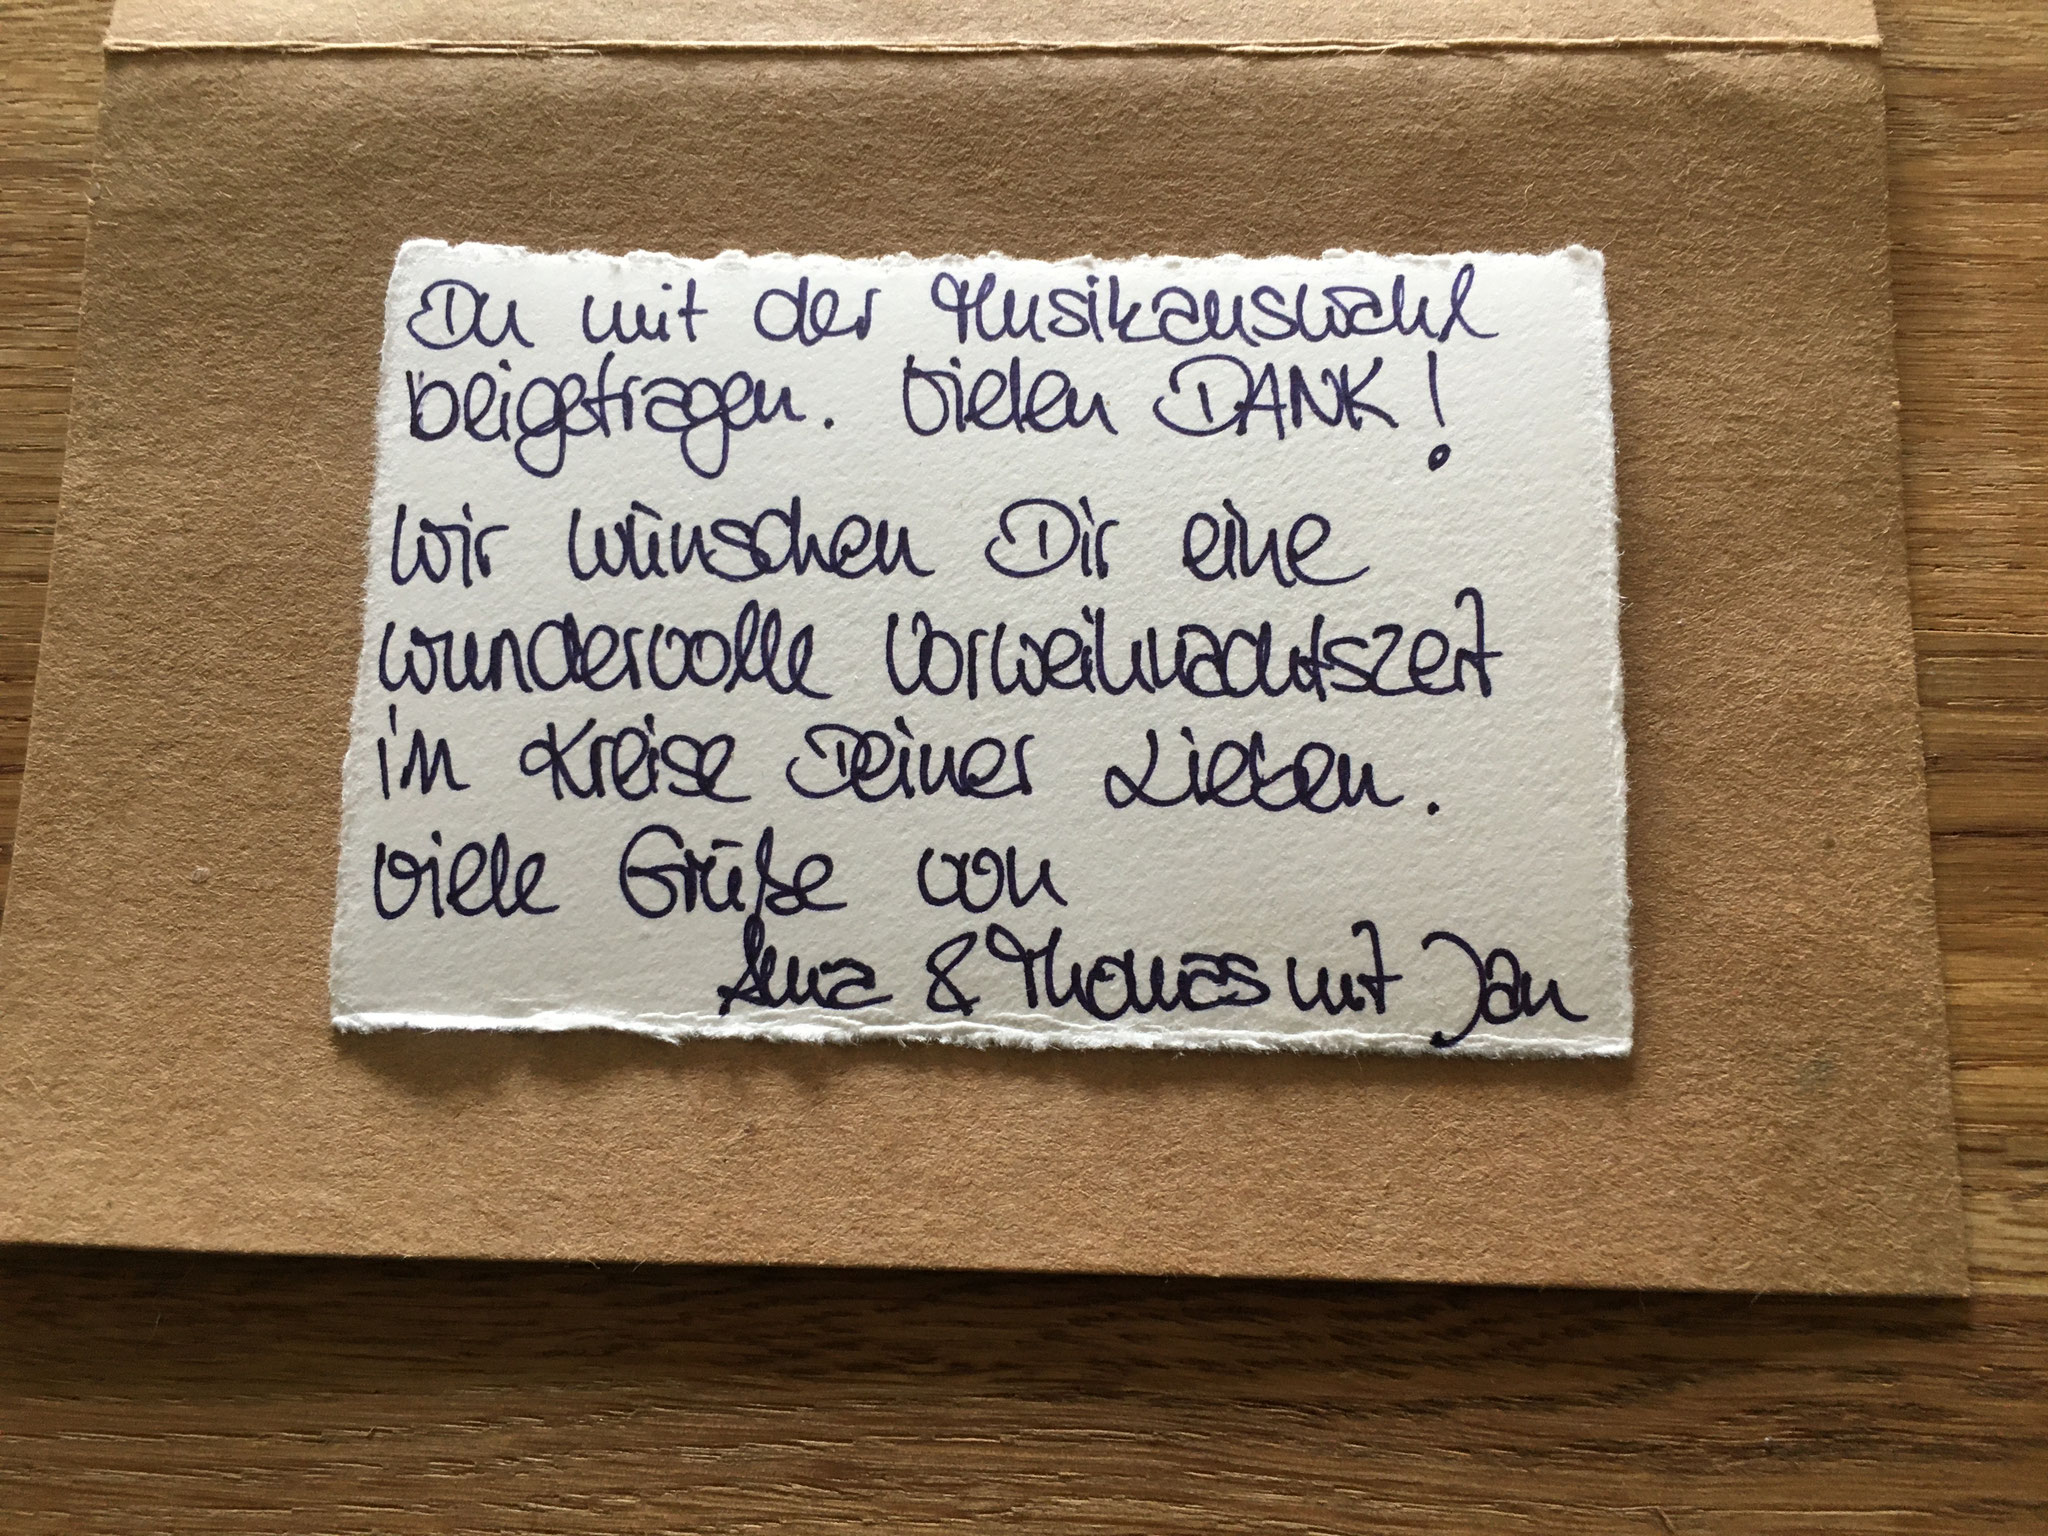 Du mit der Musikauswahl
beigetragen. Vielen DANK!
Wir wünschen Dir eine
wundervolle Vorweihnachtszeit
im Kreise Deiner Lieben.
Viele Grüße von
& Thomas mit Jan